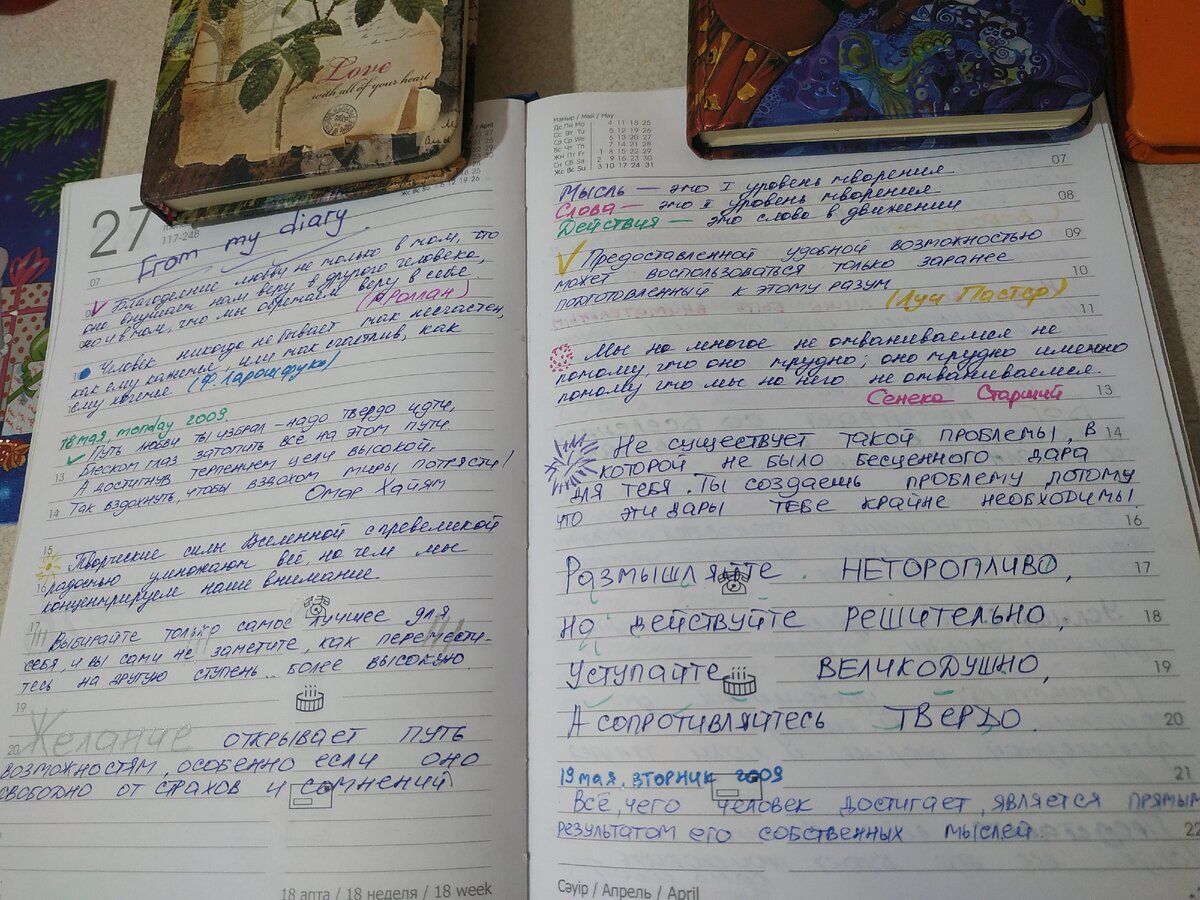 Love
with all of your heart
27
117-248
From my diary
07
Благоденствие люблю не только в том, что
оно внушает нам веру в другого человека,
но и в том, что мы обретаем веру в себе.
(Роллан)
Человек никогда не бывает так несчастен,
как ему кажется, или так счастлив, как
ему хочется. (Ф. Ларошфуко)
18 мая, monday 2009.
Путь любви ты избрал – надо твердо идти,
Блеском глаз затопить всё на этом пути
13
А достигнув терпением цели высокой,
14 Так вздохнуть, чтобы вздохом миры потрясти!
Омар Хайям
15
Творческие силы Вселенной с превеликой
16 радостью умножают всё, на чем мы
концентрируем наше внимание.
17
Выбирайте только самое лучшее для
себя, и вы сами не заметите, как перемести-
тесь на другую ступень.. более высокую.
19
20 Желание открывает путь
возможностям, особенно если оно
свободно от страхов и сомнений
18 апта / 18 неделя / 18 week
мамыр / Май / May
Дс Пн Mo 4 11 18 25
Сс Вт Tu 5 12 19 26
Ср Ср We 6 13 20 27
Бс Чт Th 7 14 21 28
Жм Пт Fr 1 8 15 22 29
Сн Сб Sa 2 9 16 23 30
Жс Вс Su 3 10 17 24 31
07
Мысль — это I уровень творения
Слова — это II уровень творения
08
Действия — это слово в движении
09
Предоставленной удобной возможностью
может воспользоваться только заранее
10
подготовленный к этому разум
(Луи Пастер)
11
Мы на многое не отваживаемся не
потому, что оно трудно; оно трудно именно
потому что мы на него не отваживаемся.
13
Сенека Старший
Не существует такой проблемы, в 14
которой не было бесценного дара
для тебя. Ты создаешь проблему потому
что эти дары тебе крайне необходимы.
16
Размышляйте неторопливо, 17
Но действуйте решительно, 18
Уступайте великодушно, 19
А сопротивляйтесь твердо. 20
19 мая, вторник 2009
21
Всё, чего человек достигает, является прямым
результатом его собственных мыслей.
22
Сәуір / Апрель / April